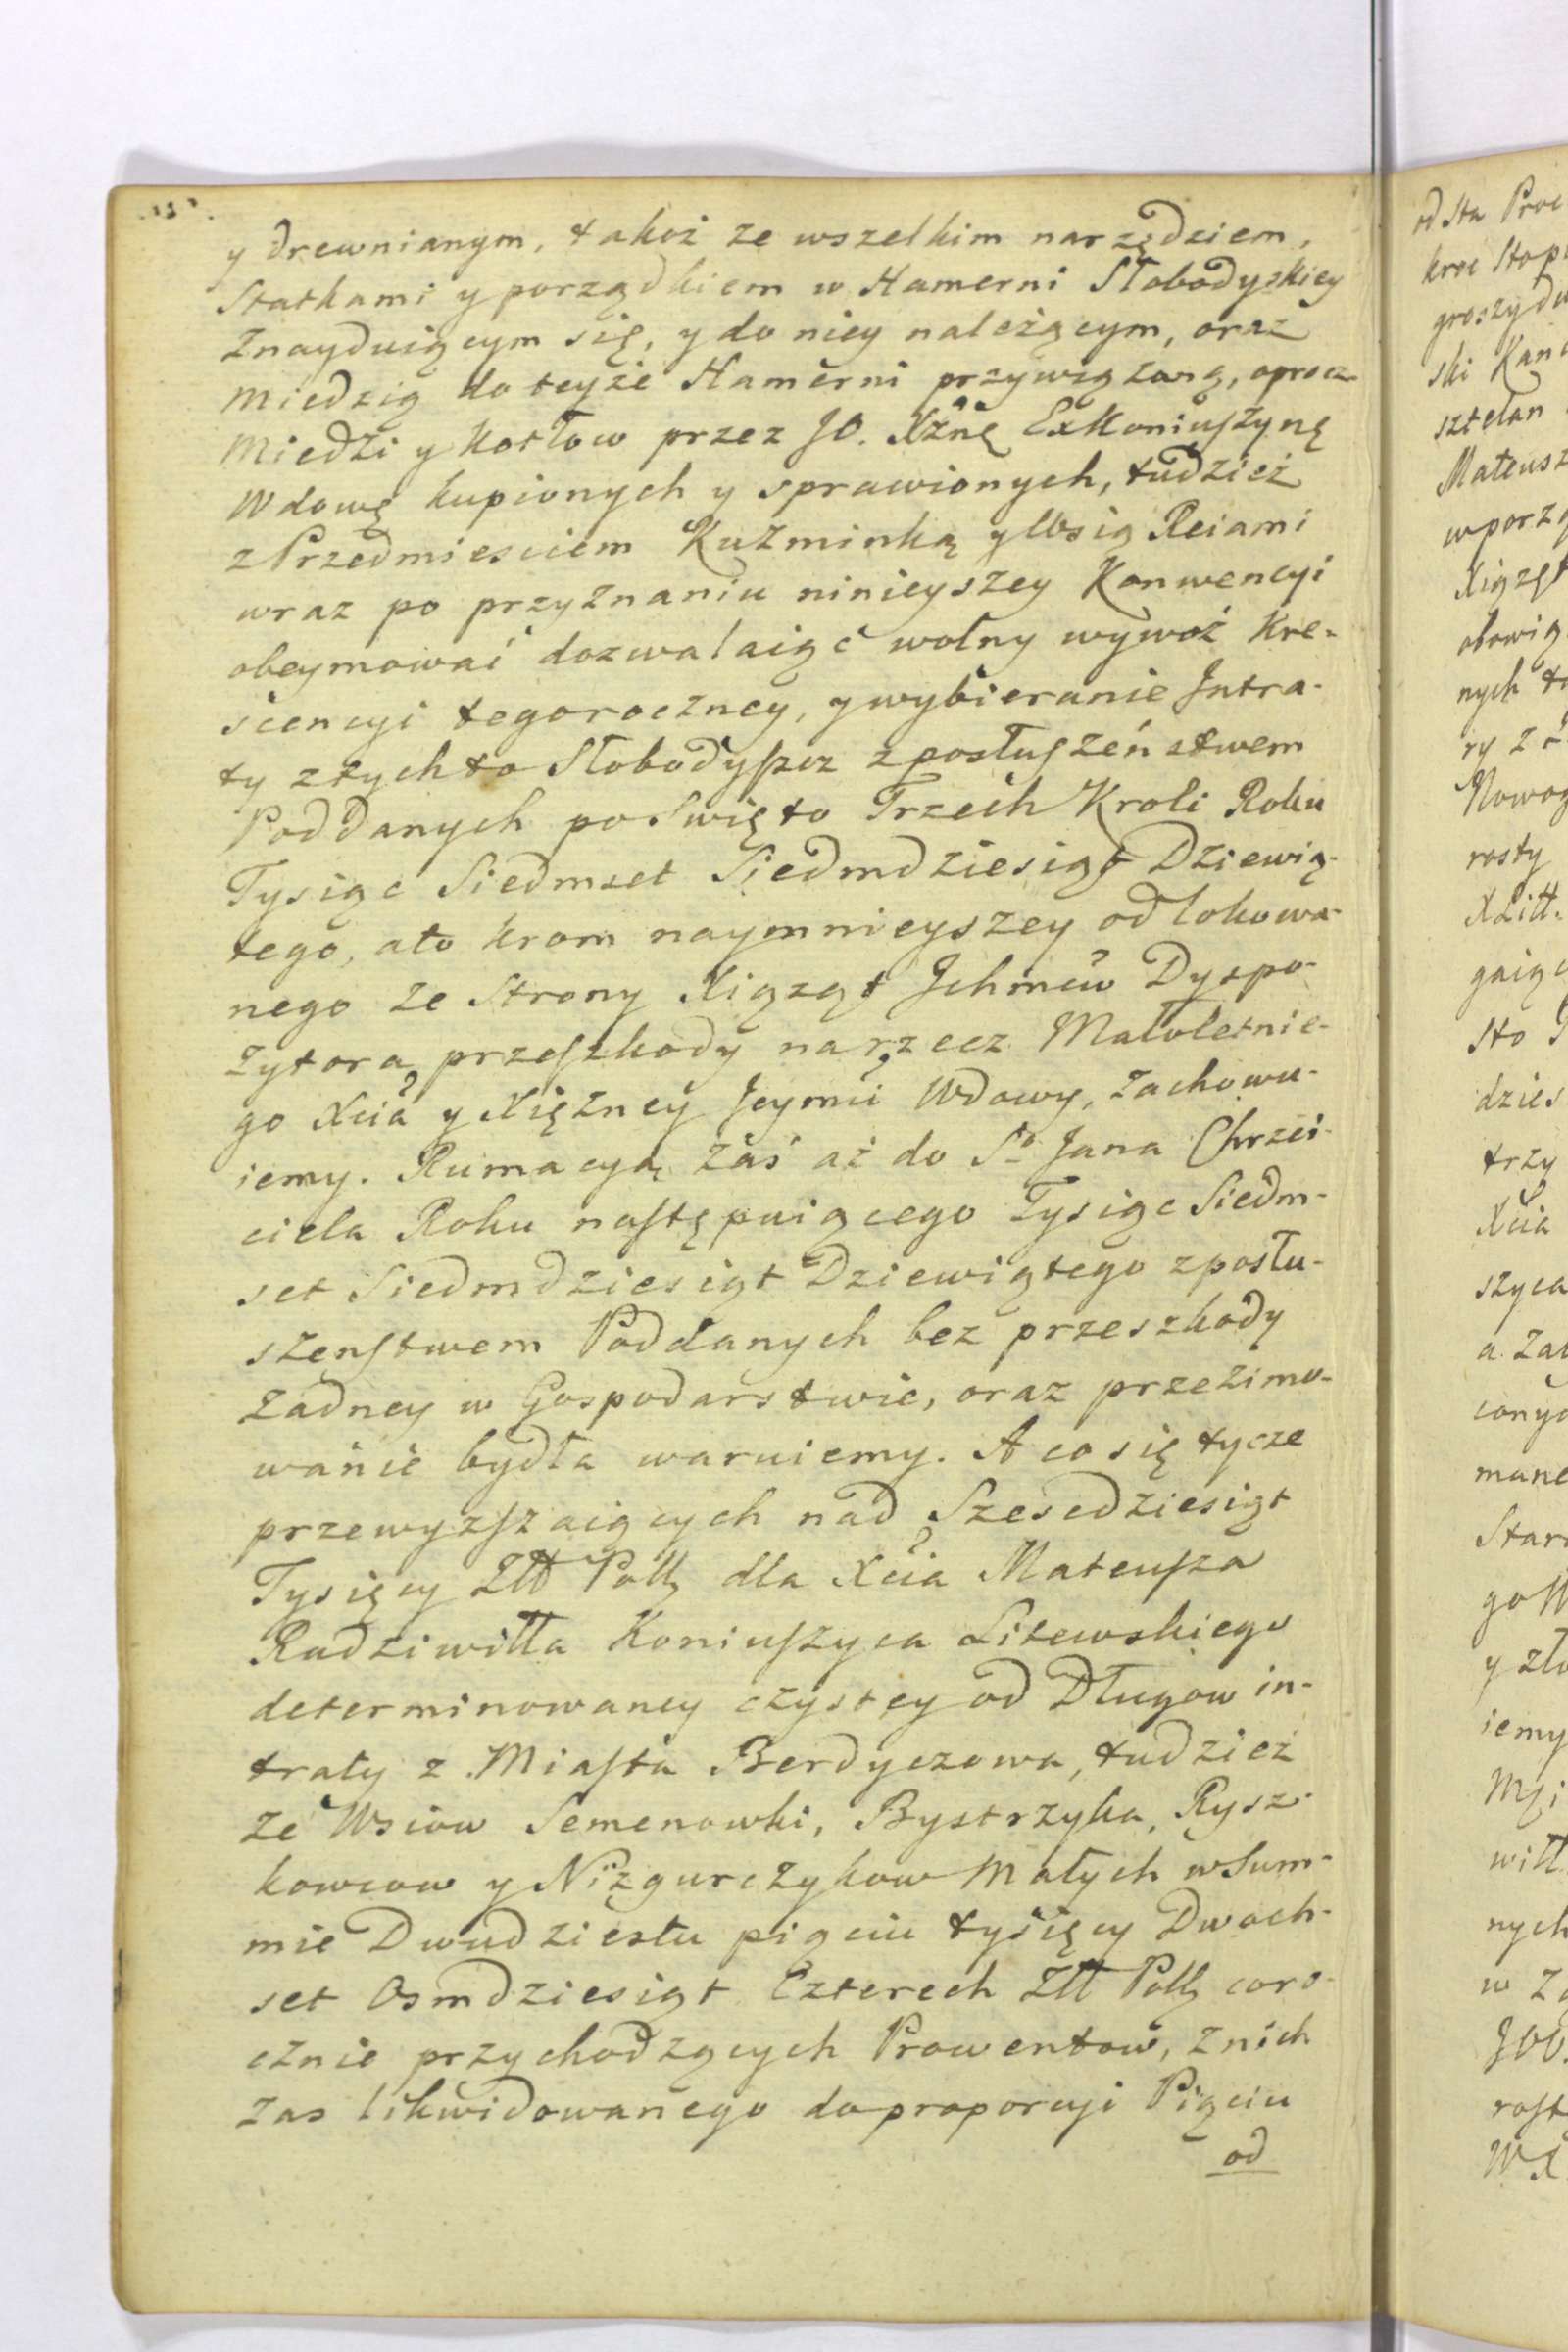 y drewnianym, takoż ze wszelkim narzędziem,
Statkami y porządkiem w Hamerni Słobodyskiey
Znayduiącym się, y do niey należącym, oraz
miedzią do teyże Hamerni przywiązaną, oprocz
Miedzi y Kotłow przez JO. Xżnę ExKoniuszynę
Wdowę kupionych y sprawionych, tudzież
z Przedmiesciem Kuzminką y Wsią Reiami
wraz po przyznaniu ninieyszey Konwencyi
obeymować dozwalaiąc wolny wywoź Kre-
scencyi tegoroczney, y wybieranie Intra-
ty z tychto Słobodyszcz z posłuszeństwem
Poddanych po Swięto Trzech Kroli Roku
Tysiąc Siedmset Siedmdziesiąt Dziewią-
tego, a to krom naymnieyszey od lokowa-
nego ze Strony Xiążąt Jchmców Dyspo-
zytora przeszkody na rzecz Małoletnie-
go Xcia y Xiężney Jeymci Wdowy, zachowu-
iemy. Rumacyą zaś aż do S° Jana Chrzci-
ciela Roku następuiącego Tysiąc Siedm-
set Siedmdziesiąt Dziewiątego z posłu-
szenstwem Poddanych bez przeszkody
żadney w Gospodarstwie, oraz przezimo-
wanie bydła waruiemy. A co się tycze
przewyzszaiących nad Szescdziesiąt
Tysięcy Złł Poll dla Xcia Mateusza
Radziwiłła Koniuszyca Litewskiego
determinowaney czystey od Długow in-
traty z Miasta Berdyczowa, tudzież
ze Wsiow Semenowki, Bystrzyka, Rysz-
kowcow y Niżgurczykow Małych w Sum-
mie Dwudziestu pięciu tysięcy Dwoch-
set Osmdziesiąt Czterech Złł Poll coro-
cznie przychodzących Prowentow, z nich
zas likwidowanego do proporcyi Pięciu
od
od Sta
groszy
ski
sztelan
obowią
nych
rosty
XLitt.
Sto
dzies
trzy
Xcia
szyca
iemy
nych